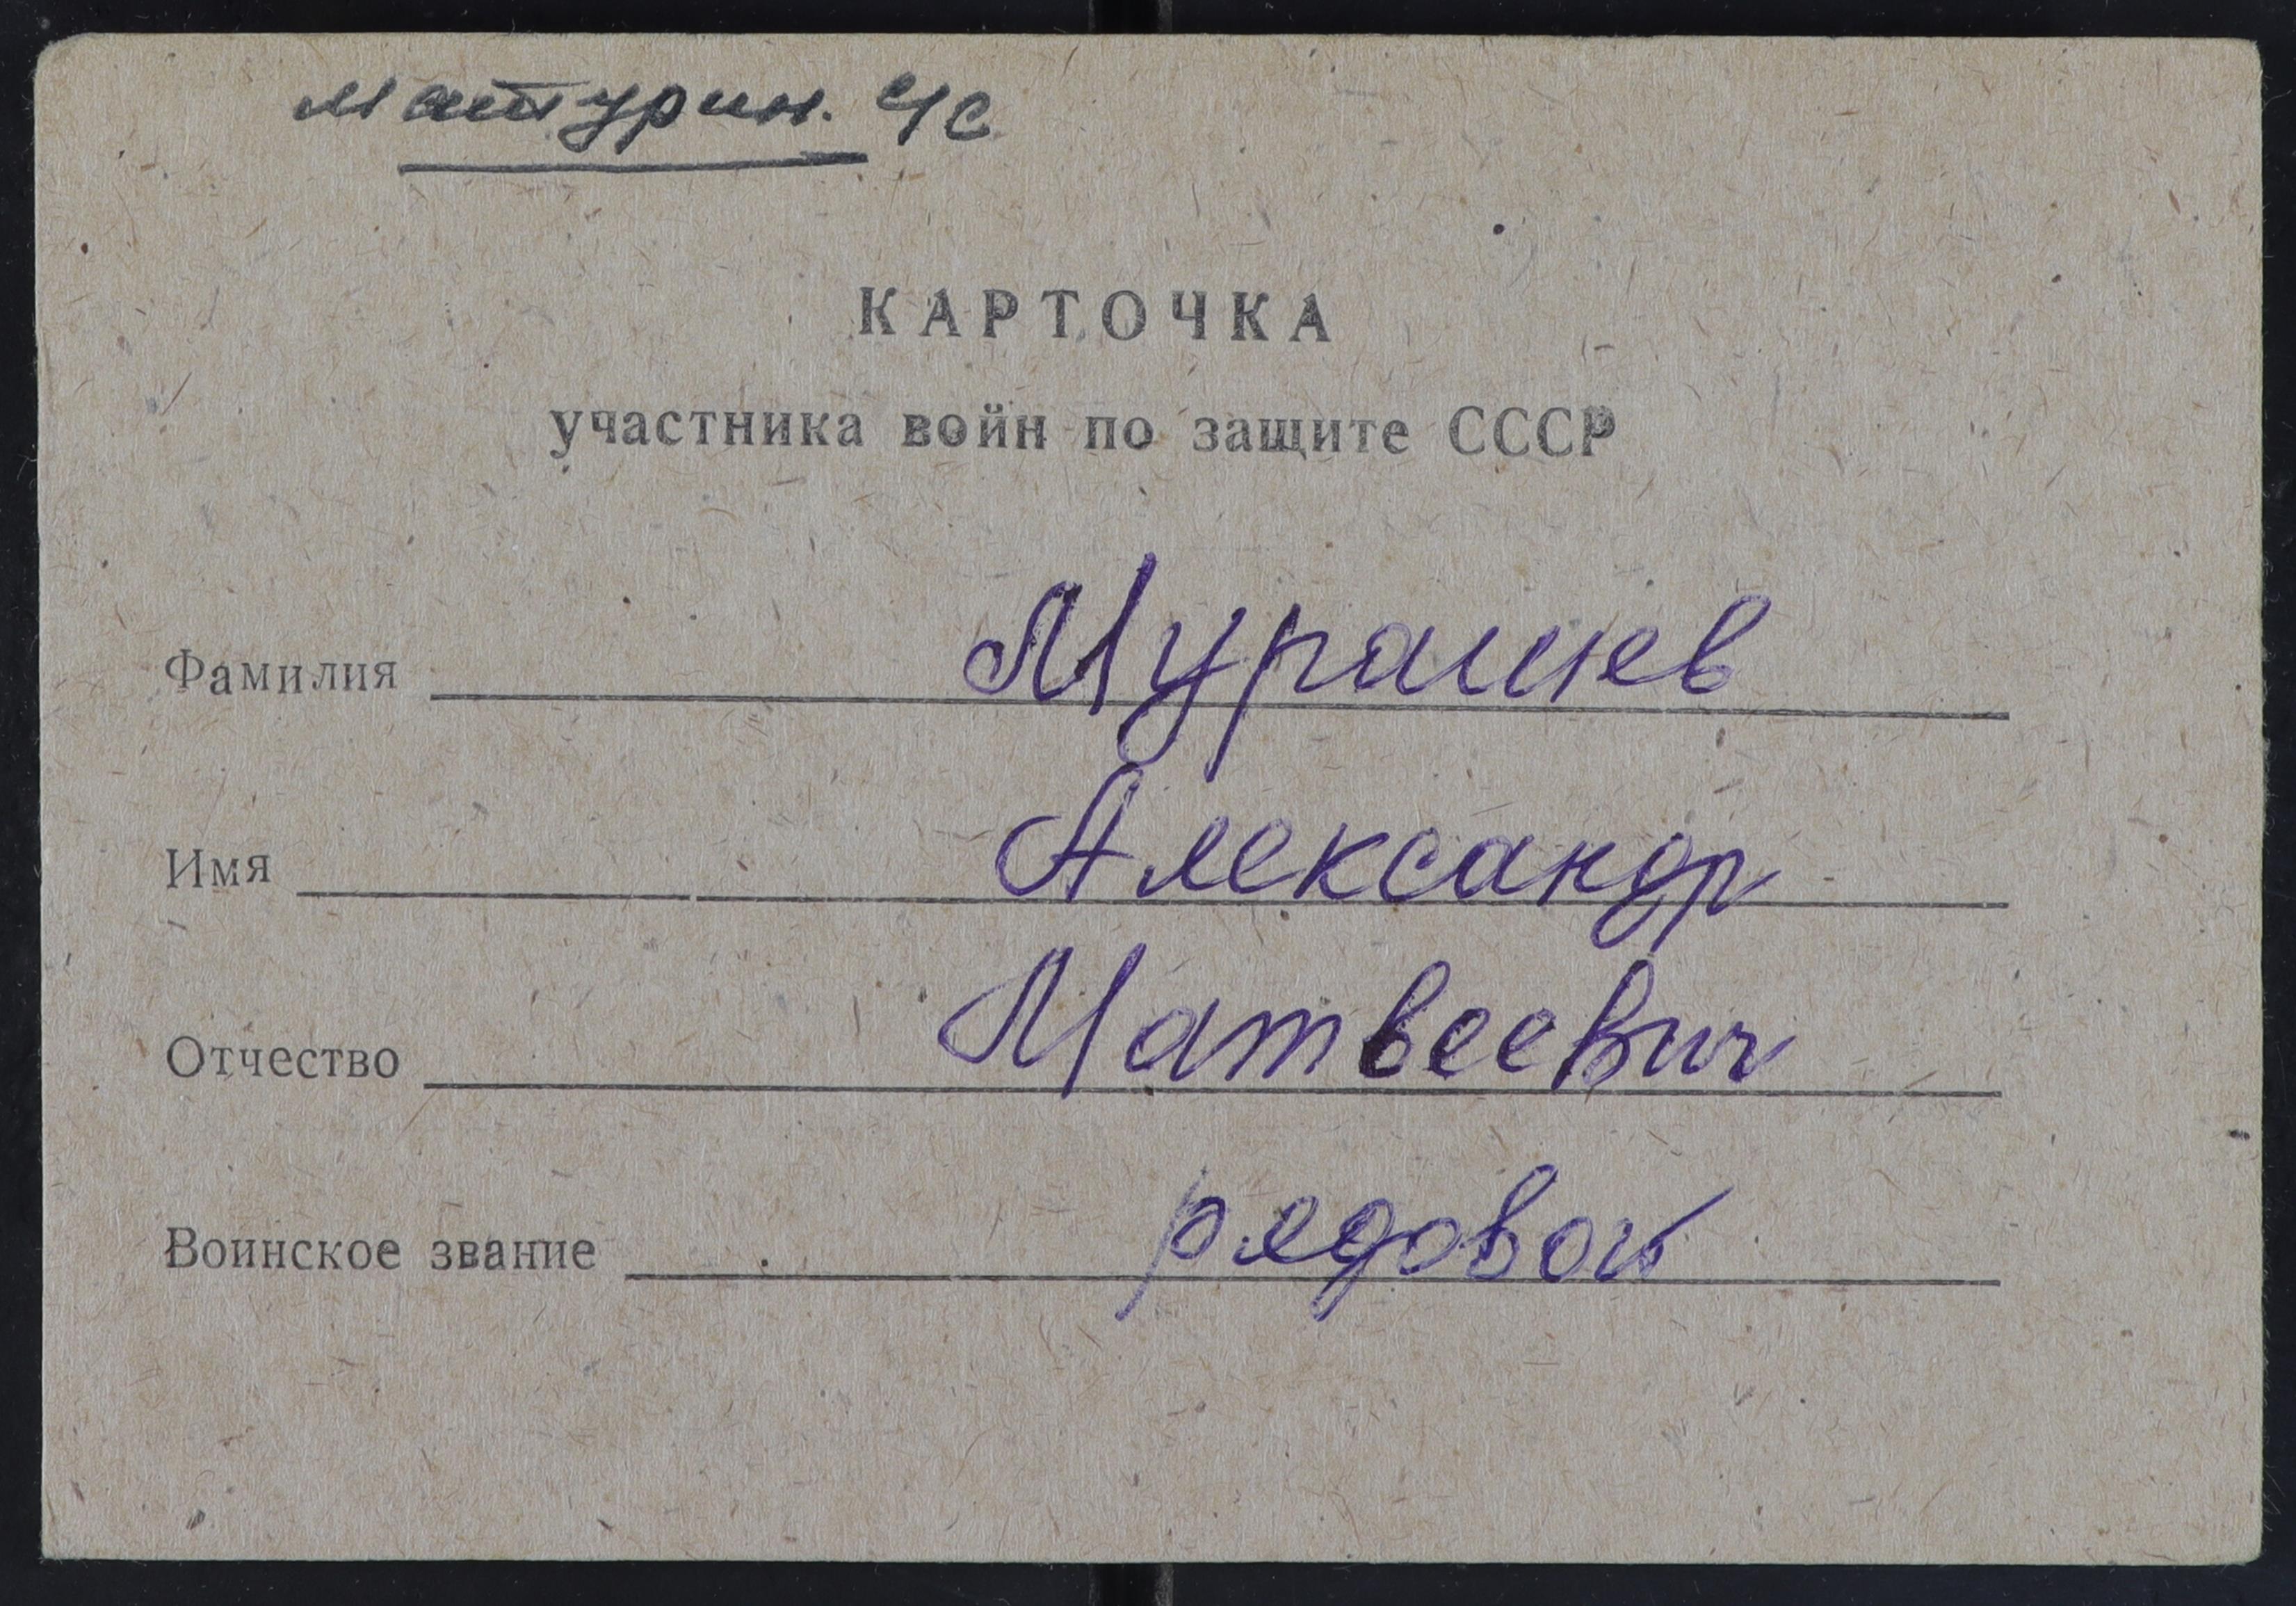 Матурин. с/с
КАРТОЧКА
участника войн по защите СССР
Фамилия Мурашев
Имя Александр
Отчество Матвеевич
Воинское звание рядовой